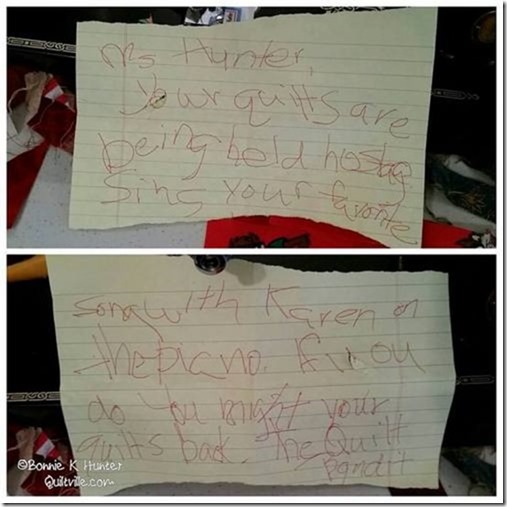 Ms Hunter,
Your quilts are
being held hostag
Sing your favorite
song with Karen on
the piano. If you
do you might your
quilts back. The Quilt
Bandit
©Bonnie K Hunter
Quiltville.com